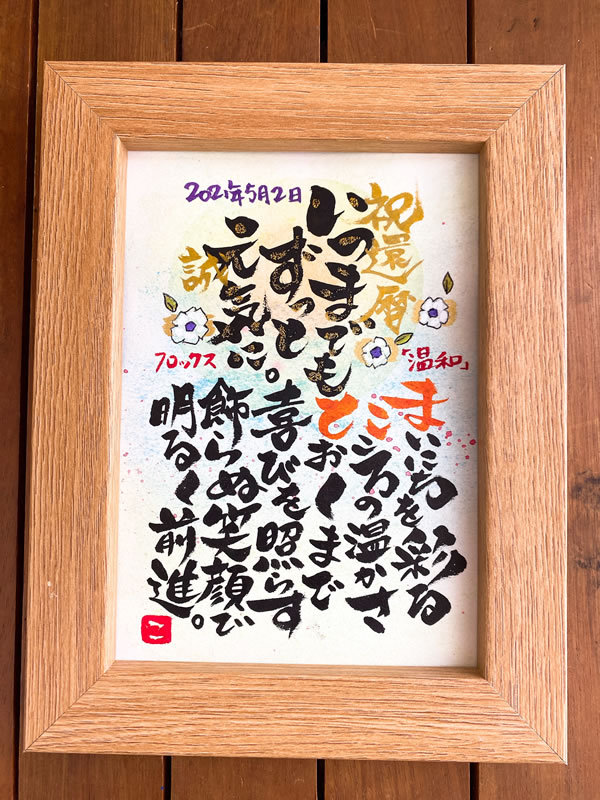 2021年5月2日
祝還暦
いつまでも
ずっと
元気に。
誠
「温和」
フロックス
まいにちを彩る
こころの温かさ
とおくまで
喜びを照らす
飾らぬ笑顔で
明るく前進。
こ